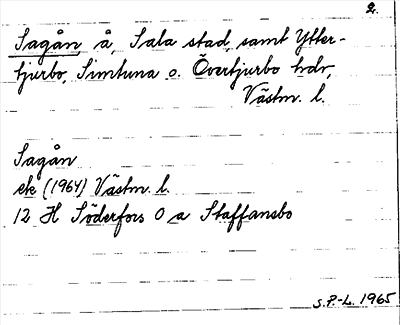 2.
Sagån, å, Sala stad, samt Ytter-
tjurbo, Simtuna o. Övertjurbo hdr,
Västm. l.
Sagån
ek (1964) Västm. l.
12 H Söderfors O a Staffansbo
S.P.-L. 1965